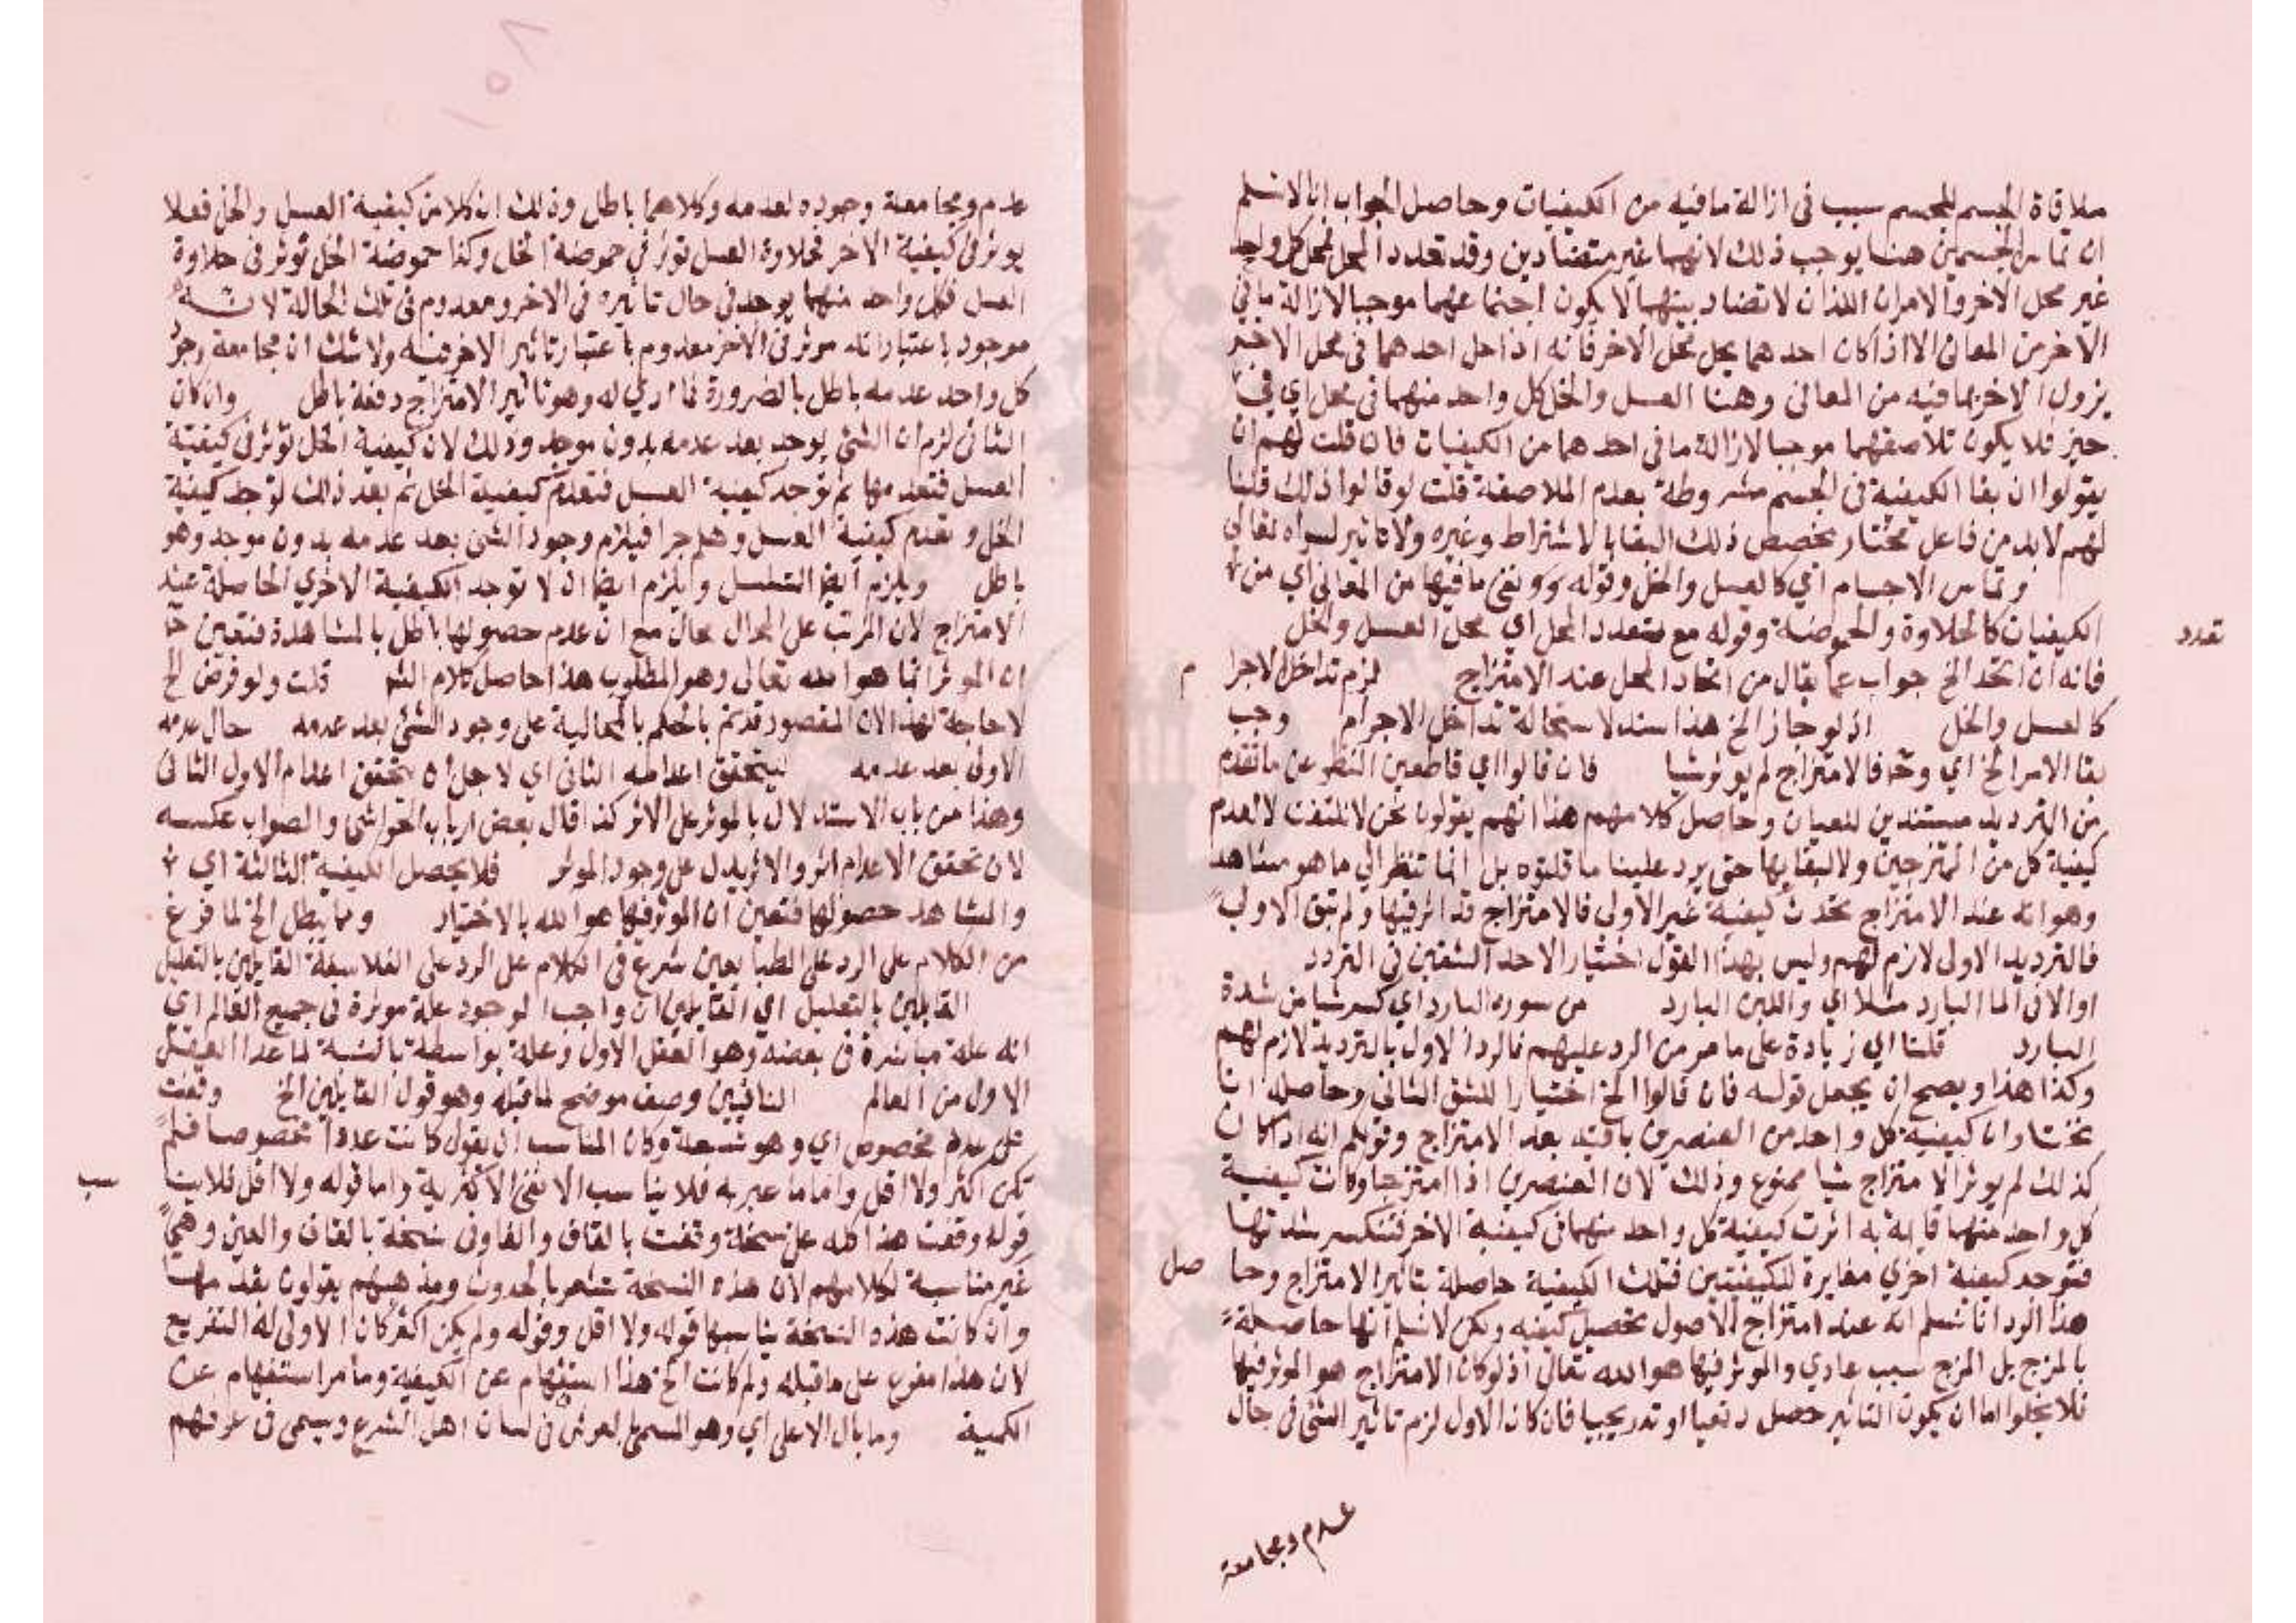 ملاقاة الجسم للجسم سبب فى ازالة ما فيه من الكيفيات وحاصل الجواب انا لا نسلم
ان تماس الجسمين هنا يوجب ذلك لانهما غير متضادين وقد تعدد المحل فمحل كل واحد
غير محل الاخر والامران اللذان لا تضاد بينهما لا يكون اجتماعهما موجبا لازالة ما فى
الاخر من المعانى الا اذا كان احدهما يحل محل الاخر فانه اذا حل احدهما فى محل الاخر
يزول الاخر بما فيه من المعانى وهنا العسل والخل كل واحد منهما فى محل اي فى
حيز فلا يكون تلاصقهما موجبا لازالة ما فى احدهما من الكيفيات فان قلت لهم ان
يقولوا ان بقا الكيفية فى الجسم مشروطة بعدم الملاصقة قلت لو قالوا ذلك قلنا
لهم لا بد من فاعل مختار يخصص ذلك البقا بالاشتراط وغيره ولا تاثير لسواه تعالى
وتماس الاجسام اي كالعسل والخل وقوله ونفى ما فيها من المعانى اي من
الكيفيات كالحلاوة والحموضة وقوله مع تعدد المحل اي محل العسل والخل
تعدد
فانه ان اتحد الخ جواب عما يقال من اتحاد المحل عند الامتزاج لزم تداخل الاجرا م
كالعسل والخل اذ لو جاز الخ هذا سند لاستحالة تداخل الاجرام وجب
بقا الامر الخ اي وح فالامتزاج لم يوثر شيا فان قالوا اي قاطعين النظر عن ما تقدم
من الترديد مستندين للعيان وحاصل كلامهم هذا انهم يقولون نحن لا نلتفت لا لعدم
كيفية كل من الممتزجين ولا لبقايها حتى يرد علينا ما قلتوه بل انما ننظر الي ما هو مشاهد
وهو انه عند الامتزاج تحدث كيفية غير الاولى فالامتزاج قد اثر فيها ولم تبق الاولى
فالترديد الاول لازم لهم وليس بهذا القول اختيار الاحد الشقين فى التردد
او الاتى الما البارد مثلا اي واللبن البارد من سورة البارد اي كسر شيا من شدة
البارد قلنا اي زيادة على ما مر من الرد عليهم فالرد الاول بالترديد لازم لهم
وكذا هذا ويصح ان يجعل قوله فان قالوا الخ اختيارا للشق الثانى وحاصله انا
نختار ان كيفية كل واحد من العنصرين باقية بعد الامتزاج وقولكم انه اذا كان
كذلك لم يوثر الامتزاج شيا ممنوع وذلك لان العنصرين اذا امتزجا وكانت كيفية
كل واحد منهما قايمة به اثرت كيفية كل واحد منهما فى كيفية الاخر فتنكسر شدتها
فتوجد كيفية اخري مغايرة للكيفيتين فتلك الكيفية حاصلة بتاثير الامتزاج وحا صل
هذا الرد انا نسلم انه عند امتزاج الاصول تحصل كيفيه ولكن لا نسلم انها حاصلة
بالمزج بل المزج سبب عادي والموثر فيها هو الله تعالى اذ لو كان الامتزاج هو الموثر فيها
فلا يخلوا اما ان يكون التاثير حصل دفعيا او تدريجيا فان كان الاول لزم تاثير الشى فى حال
عدم ومجامعة
١٥٧
عدم ومجامعة وجوده لعدمه وكلاهما باطل وذلك ان كلا من كيفية العسل والخل فعلا
يوثر فى كيفية الاخر فحلاوة العسل توثر فى حموضة الخل وكذا حموضة الخل توثر فى حلاوة
العسل فكل واحد منهما يوجد فى حال تاثيره فى الاخر ومعدوم فى تلك الحالة لانه
موجود باعتبار انه موثر فى الاخر معدوم باعتبار تاثير الاخر فيه ولا شك ان مجامعة وجود
كل واحد عدمه باطل بالضرورة فما ادي له وهو تاثير الامتزاج دفعة باطل وان كان
الثانى لزم ان الشى يوجد بعد عدمه بدون موجد وذلك لان كيفية الخل توثر فى كيفية
العسل فتعدمها ثم توجد كيفية العسل فتعدم كيفية الخل ثم بعد ذلك توجد كيفية
الخل وتعدم كيفية العسل وهلم جرا فيلزم وجود الشى بعد عدمه بدون موجد وهو
باطل ويلزم ايضا التسلسل ويلزم ايضا ان لا توجد الكيفية الاخري الحاصلة عند
الامتزاج لان المرتب على المحال محال مع ان عدم حصولها باطل بالمشاهدة فتعين ح
ان الموثر انما هو الله تعالى وهو المطلوب هذا حاصل كلام الشم قلت ولو فرض الخ
لا حاجة لهذا لان المقصود قد تم بالحكم بالمحالية على وجود الشى بعد عدمه حال عدمه
الاولى بعد عدمه ليتحقق اعدامه الثانى اي لاجل ان يتحقق اعدام الاول الثانى
وهذا من باب الاستدلال بالموثر على الاثر كذا قال بعض ارباب الحواشى والصواب عكسه
لان تحقق الاعدام اثر والاثر يدل على وجود الموثر فلا يحصل الكيفية الثالثة اي
والمشاهد حصولها فتعين ان الموثر فيها هو الله بالاختيار ومما يبطل الخ لما فرغ
من الكلام على الرد على الطبايعين شرع فى الكلام على الرد على الفلاسفة القايلين بالتعليل
القايلين بالتعليل اي القايلين ان واجب الوجود علة موثرة فى جميع العالم اي
انه علة مباشرة فى بعضه وهو العقل الاول وعلة بواسطة بالنسبة لما عدا العقل
الاول من العالم النافيين وصف موضح لما قبله وهو قول القايلين الخ وقفت
على عدد مخصوص اي وهو تسعة وكان المناسب ان يقول كانت عددا مخصوصا فلم
تكن اكثر ولا اقل واما ما عبر به فلا يناسب الا نفى الاكثرية واما قوله ولا اقل فلا ينا سب
قوله وقفت هذا كله على نسخة وقفت بالقاف والفا وفى نسخة بالقاف والعين وهي
غير مناسبة لكلامهم لان هذه النسخة تشعر بالحدوث ومذهبهم يقولون بقدمها
وان كانت هذه النسخة يناسبها قوله ولا اقل وقوله ولم يكن اكثر كان الاولى له التفريع
لان هذا مفرع على ما قبله ولم كانت الخ هذا استفهام عن الكيفية وما مر استفهام عن
الكمية وما بال الاعلى اي وهو المسمى بالعرش فى لسان اهل الشرع ويسمى فى عرفهم